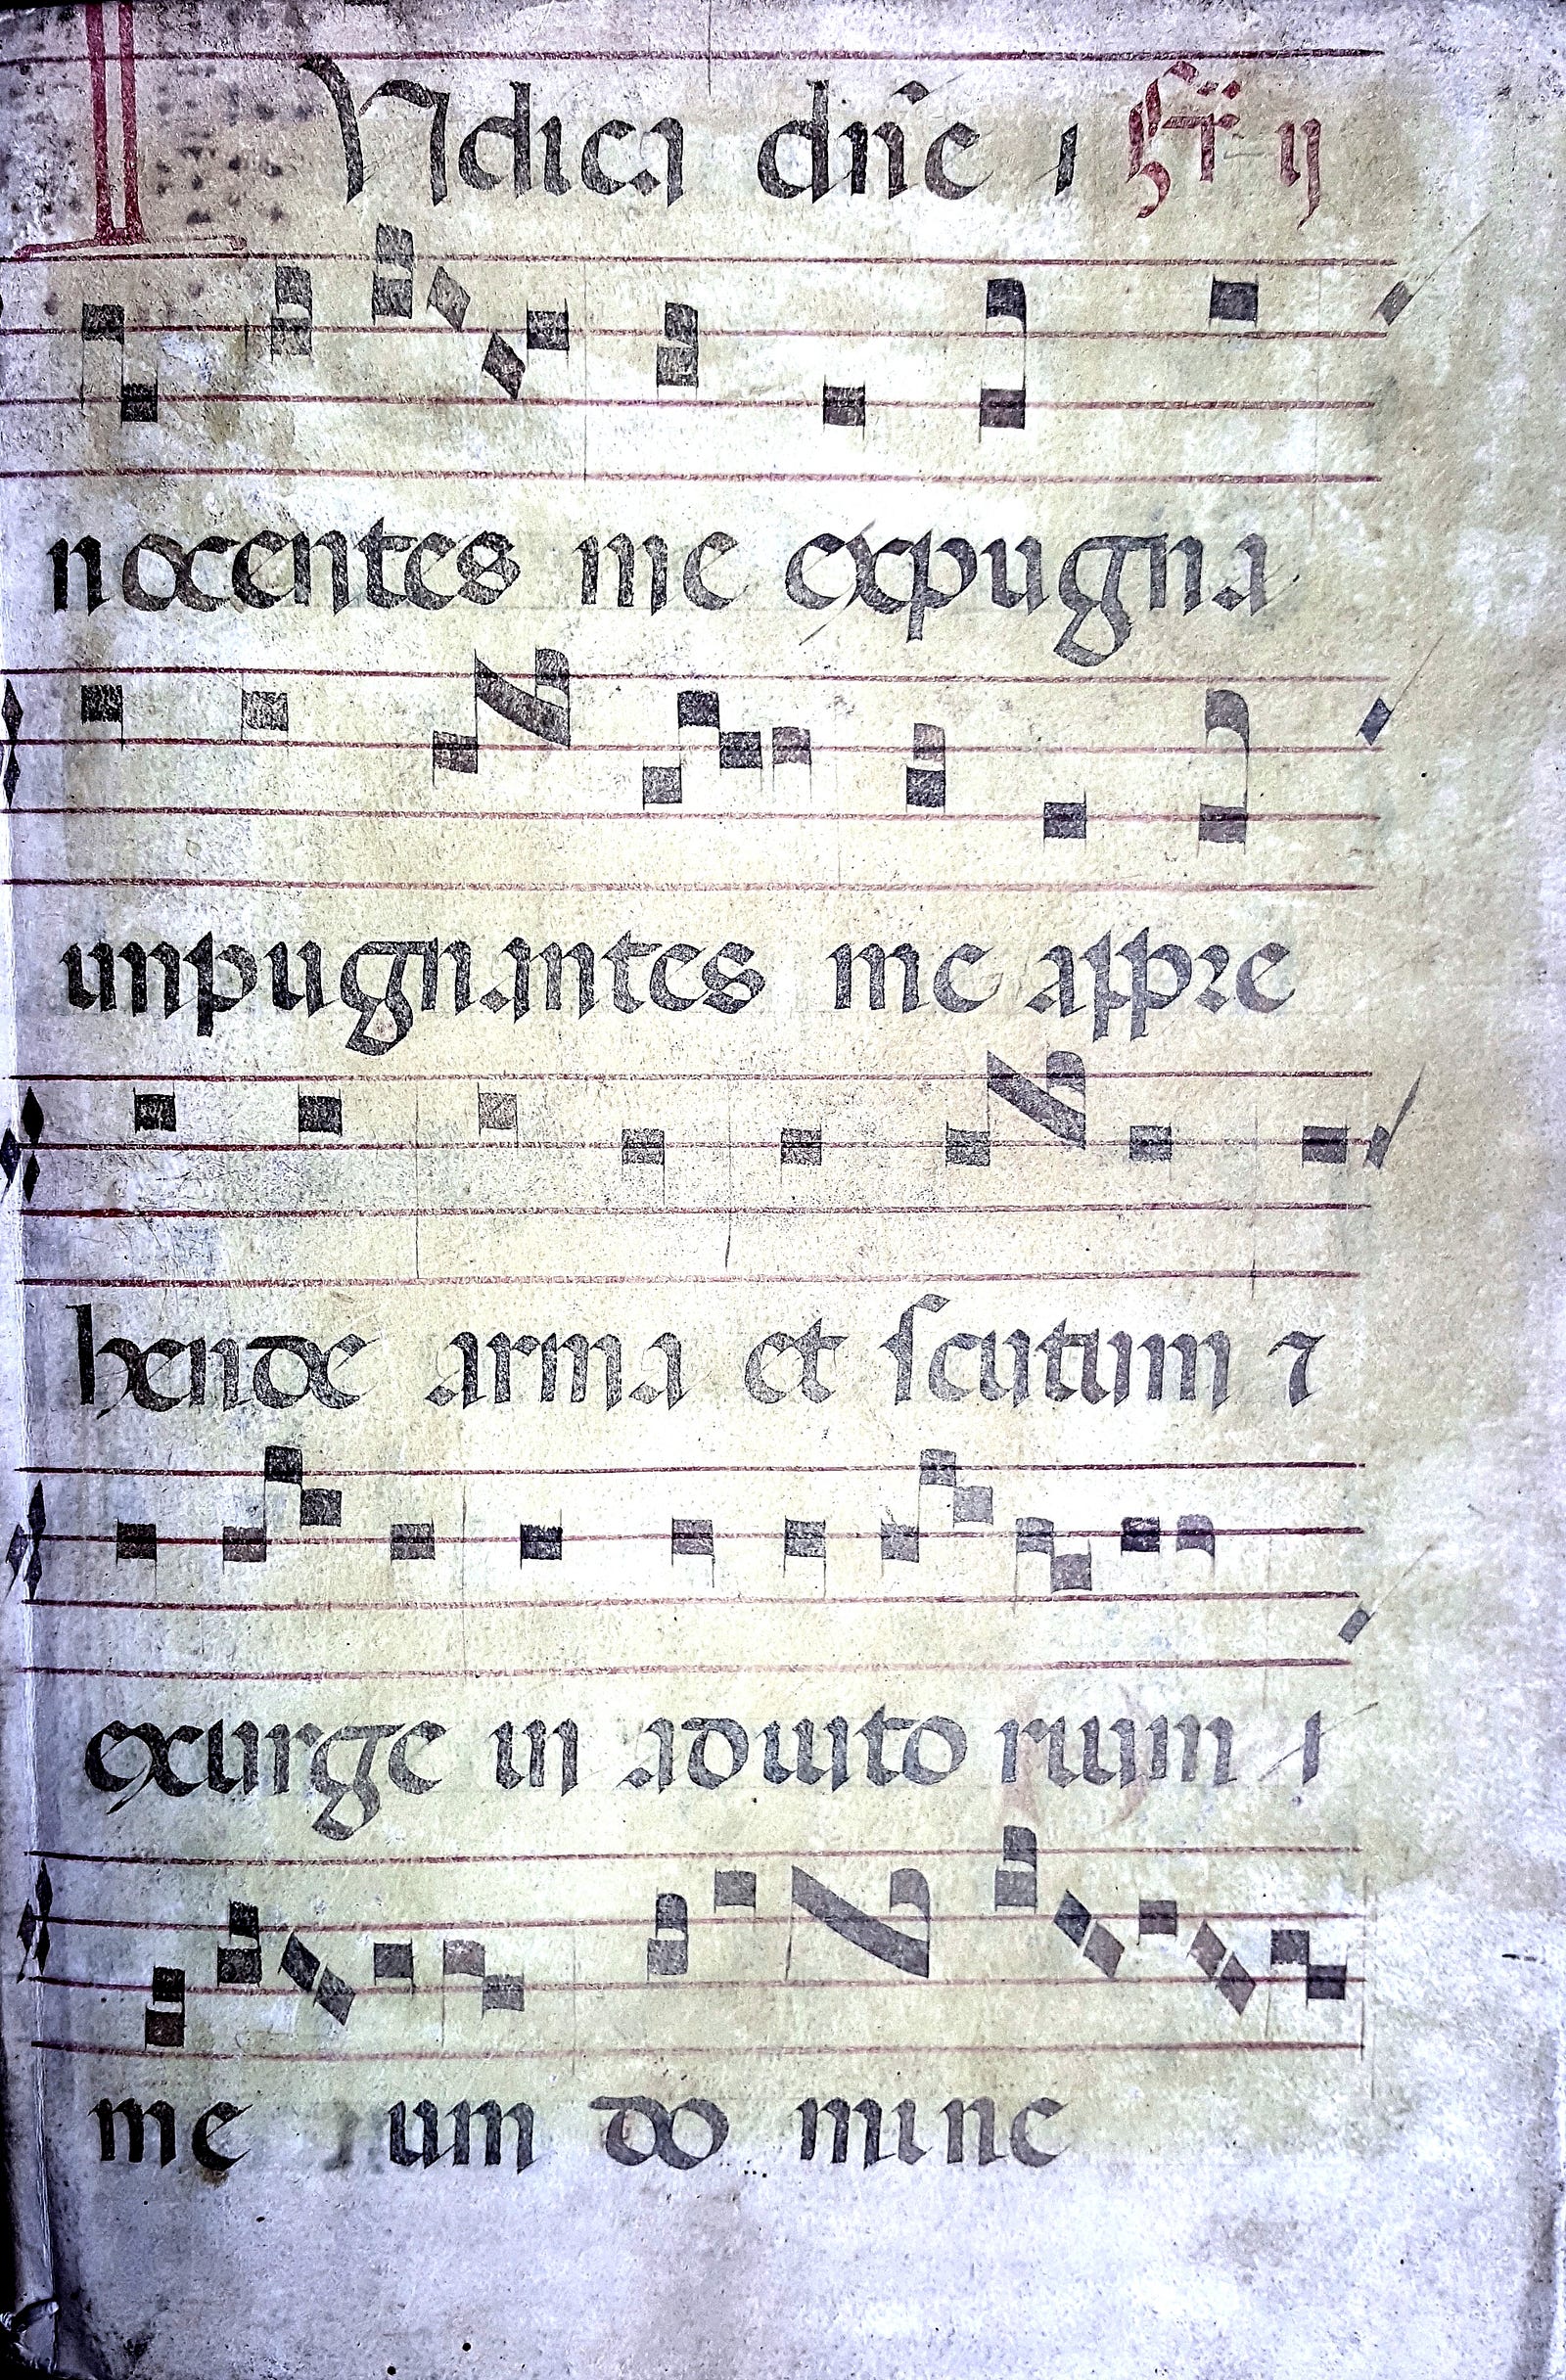 INdica dn̄e i Fr̄ ij
nocentes me expugna
inpugnantes me appre
hende arma et scutum ⁊
exurge in adiuto rium i
me um do mine